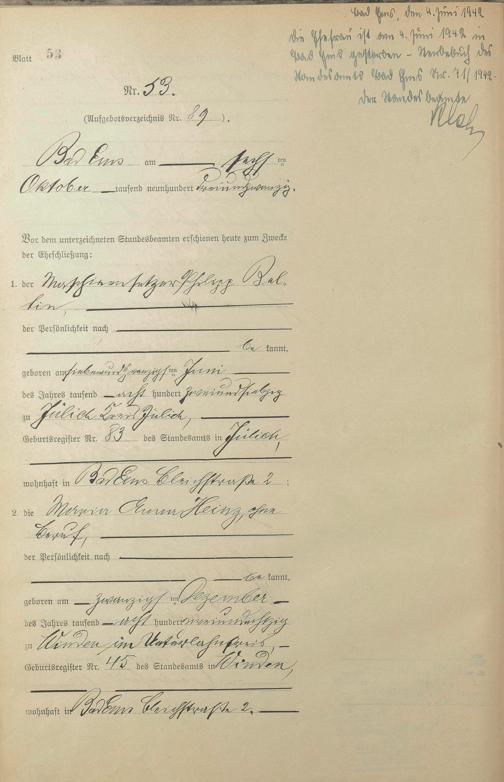 Bad Ems, den 4. Juni 1942
Die Ehefrau ist am 4. Juni 1942 in
Bad Ems gestorben - Sterbebuch des
Standesamts Bad Ems Nr. 71/1942.
Der Standesbeamte
Blatt 53
Nr. 53.
(Aufgebotsverzeichnis Nr. 89 ).
Bad Ems am sechsten
Oktober tausend neunhundert dreiundzwanzig.
Vor dem unterzeichneten Standesbeamten erschienen heute zum Zwecke
der Eheschließung:
1. der Maschinensetzer Philipp Bal-
tin,
der Persönlichkeit nach
be kannt,
geboren am siebenundzwanzigsten Juni
des Jahres tausend acht hundert zweiundsiebzig
zu Jülich Kreis Jülich,
Geburtsregister Nr. 83 des Standesamts in Jülich,
wohnhaft in Bad Ems Bleichstraße 2 ;
2. die Maria Anna Heinz, ohne
Beruf,
der Persönlichkeit nach
be kannt,
geboren am zwanzigsten Dezember
des Jahres tausend acht hundert
zu Winden im Unterlahnkreis,
Geburtsregister Nr. 45 des Standesamts in Winden,
wohnhaft in Bad Ems Bleichstraße 2.